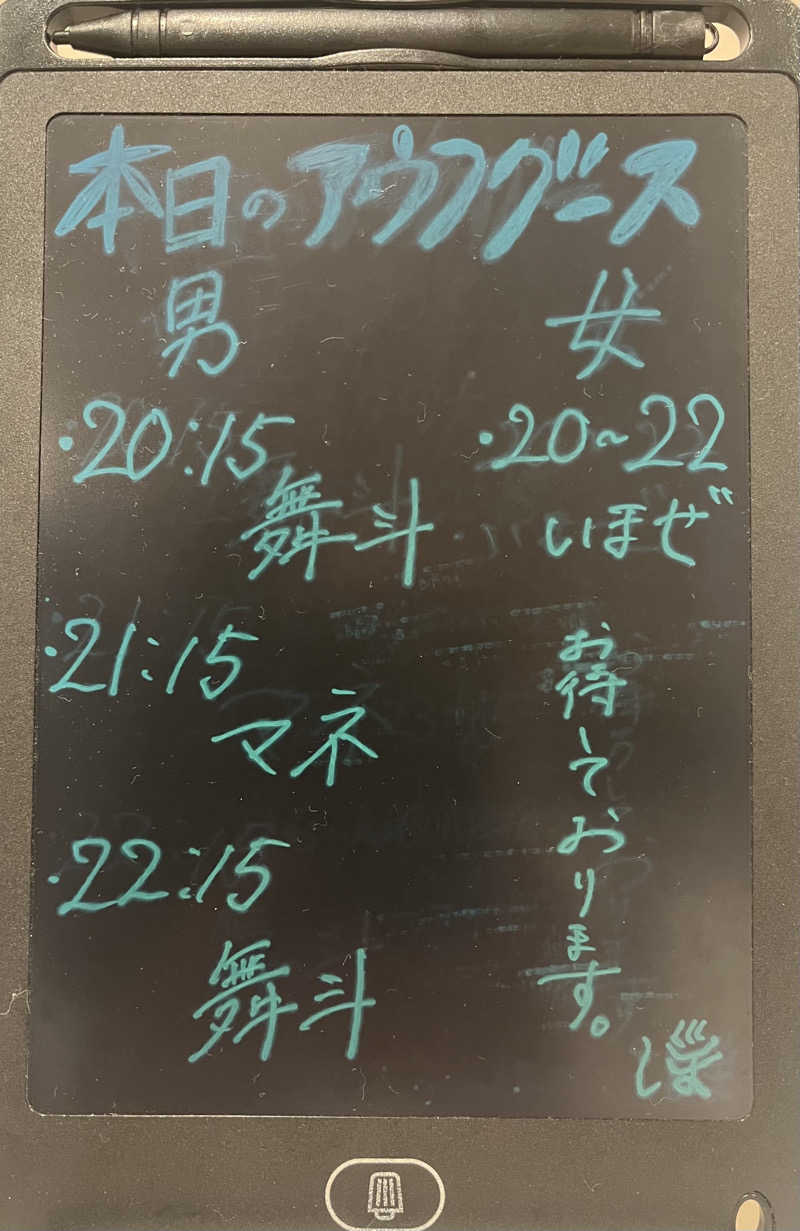 本日のアウフグース
男
・20:15
舞斗
・21:15
マネ
・22:15
舞斗
女
・20~22
いほぜ"
お待しております。